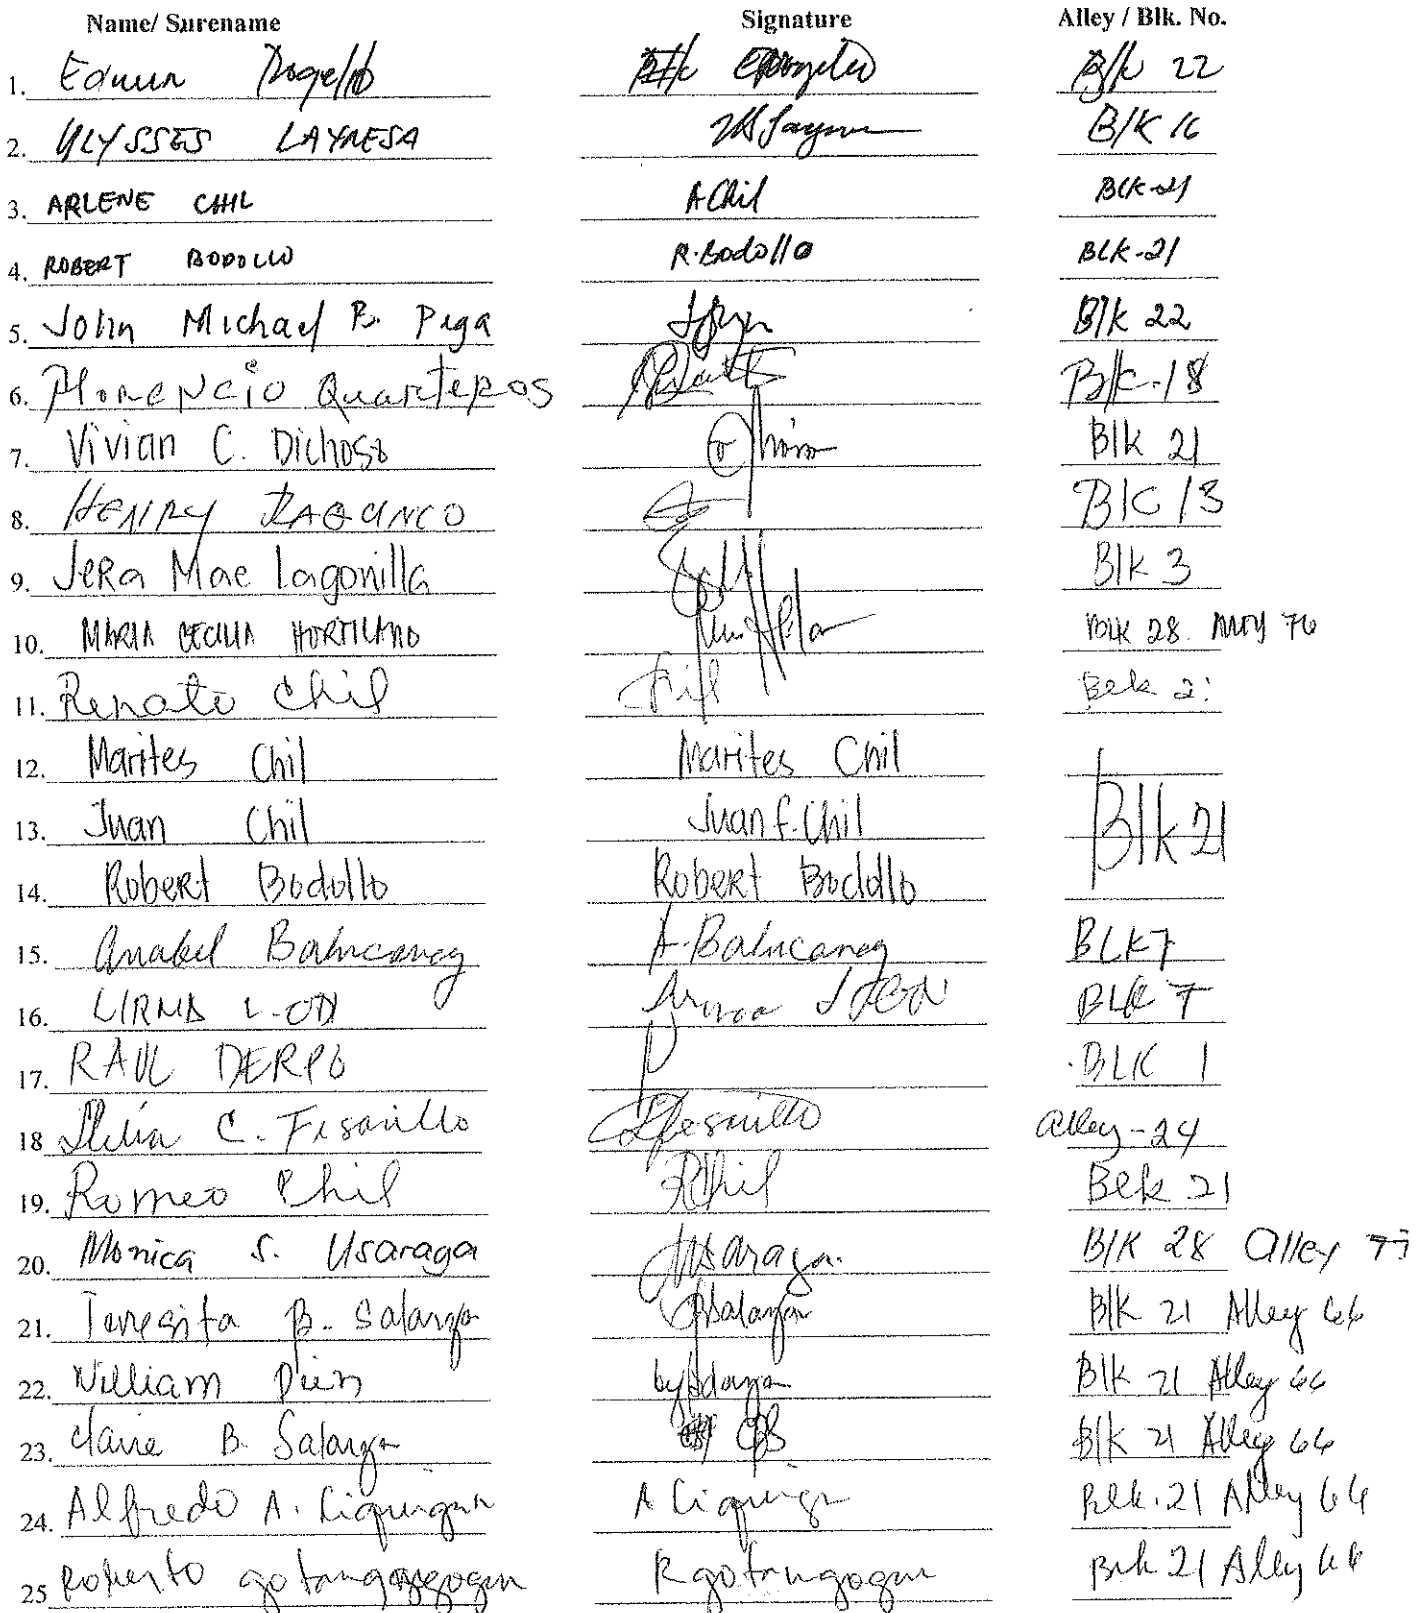 Name/ Surename Signature Alley / Blk. No.
1. Edwin Blk 22
2. ULYSSES LAYNESA Blk 16
3. ARLENE CHIL A Chil BLK-21
4. ROBERT BODOLLO R. Bodollo BLK-21
5. John Michael R. Paga Blk 22
6. Florencio Quarteros Blk-18
7. Vivian C. Dichoso Blk 21
8. HENRY BLC 13
9. JeRa Mae lagonilla Blk 3
10. MARIA CECILIA HORTILANO Blk 28 Alley 76
11. Renato Chil Chil Blk 2
12. Marites Chil Marites Chil
13. Juan Chil Juan f. Chil Blk 21
14. Robert Bodollo Robert Bodollo
15. Anabel Balucanag A. Balucanag BLK 7
16. LIRMA BLK 7
17. RAUL DERPO BLK 1
18 C. Fesarillo Alley-24
19. Romeo Chil RChil Blk 21
20. Monica S. Usaraga MUsaraga. Blk 28 Alley 77
21. Teresita B. Salarza Blk 21 Alley 66
22. William Blk 21 Alley 66
23. Claire B. Salarza CBS Blk 21 Alley 66
24. Alfredo A. Liquigan A Liquigan Blk. 21 Alley 66
25 Roberto gotangogan R gotangogan Blk 21 Alley 66